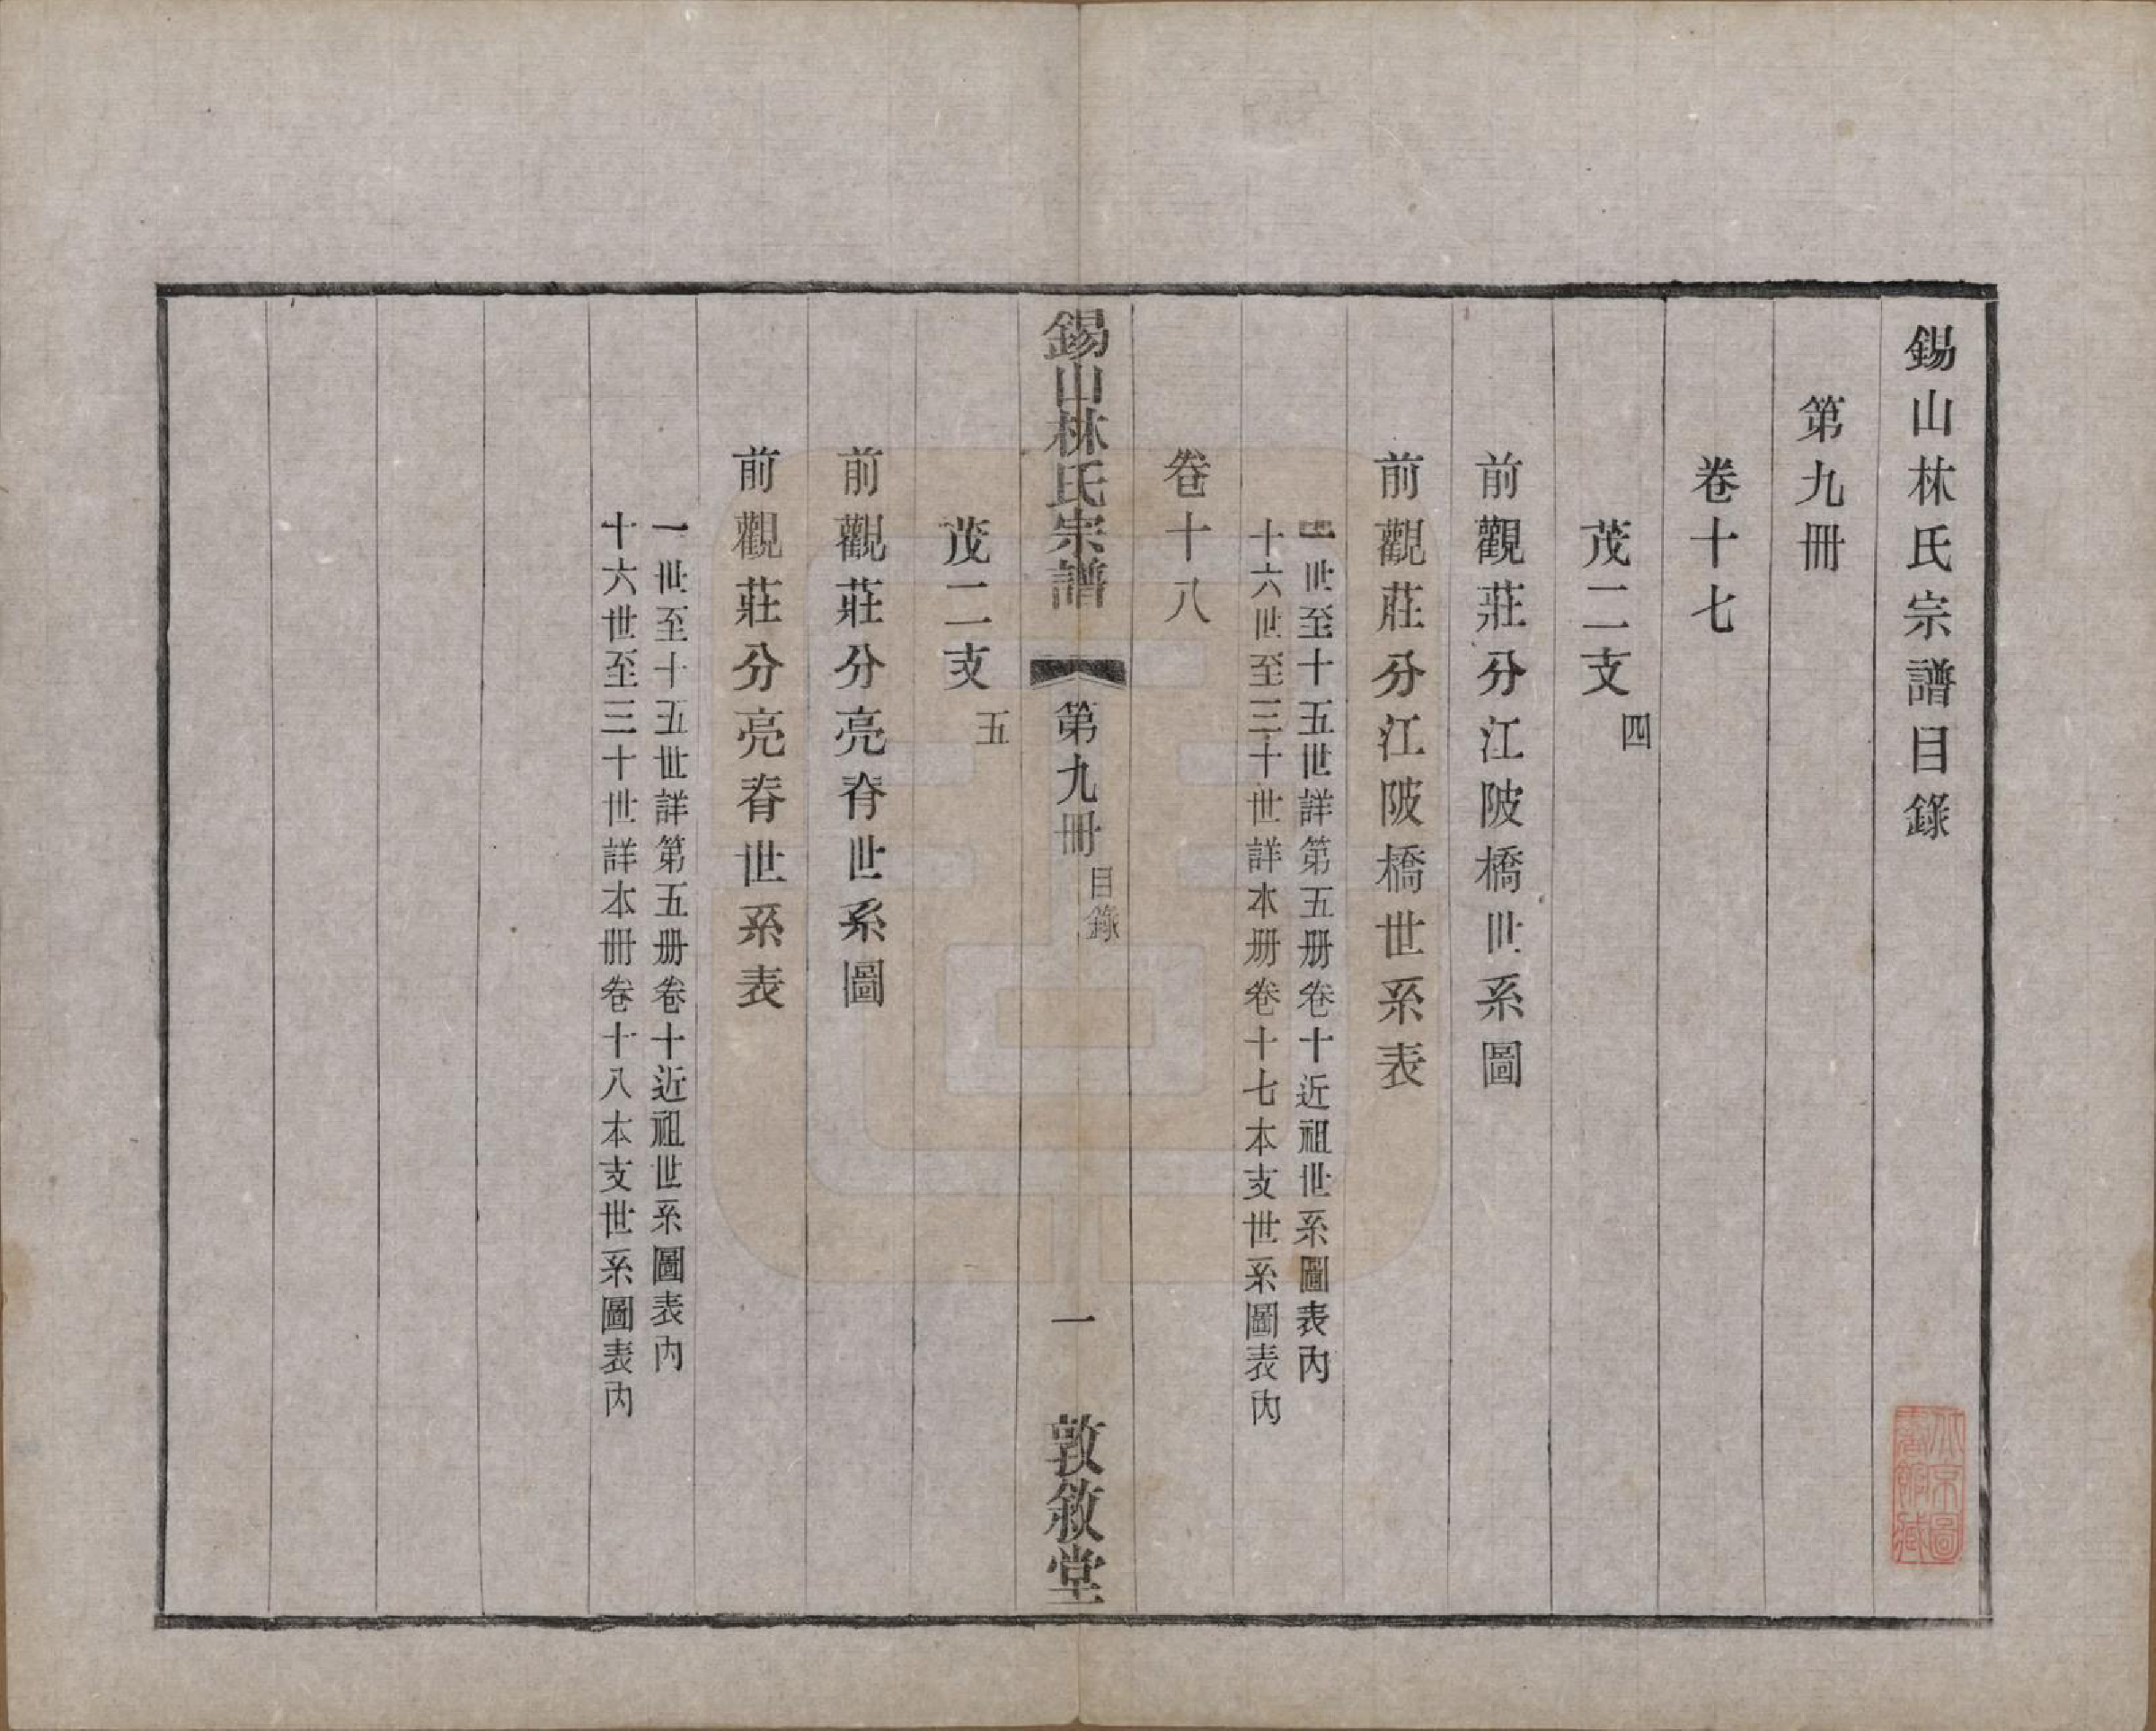 錫山林氏宗譜目錄
第九冊
卷十七
茂二支四
前觀莊分江陂橋世系圖
前觀莊分江陂橋世系表
一世至十五世詳第五册卷十近祖世系圖表內
十六世至三十世詳本册卷十七本支世系圖表內
卷十八
錫山林氏宗譜
第九冊目錄
一
敦敘堂
茂二支五
前觀莊分亮脊世系圖
前觀莊分亮脊世系表
一世至十五世詳第五册卷十近祖世系圖表內
十六世至三十世詳本冊卷十八本支世系圖表內
北京圖書館藏